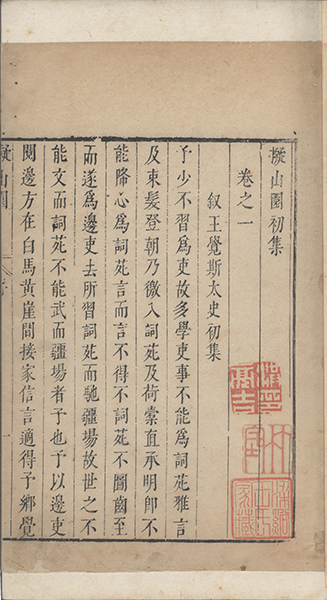 擬山園初集
卷之一
叙王覺斯太史初集
予少不習爲吏故多學吏事不能爲詞苑雅言
及束髮登朝乃徼入詞苑及荷橐直承明卽不
能降心爲詞苑言而不得不詞苑不圖齒至
而遂爲邊吏去所習詞苑而馳疆場故世之不
能文而詞苑不能武而疆場者予也予以邊吏
閱邊方在白馬黃崖間接家信言適得予鄉覺
擬山園 序 一